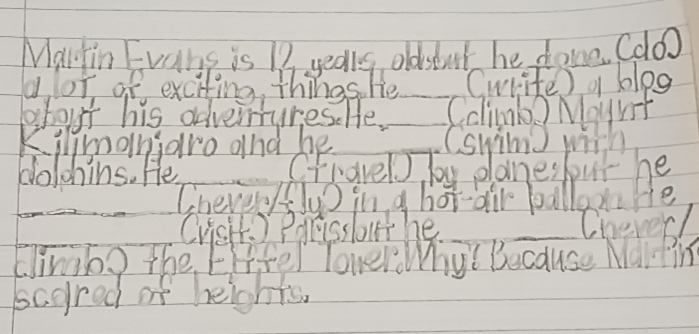 Martin Evans is 12 years old, but he done (do)
a lot of exciting, things. He ____ (write) a blog
about his adveintures. He ____ (climb) Mount
Kilimanjaro and he ____ (swim) with
dolphins. He ____ (travel) by plane, but he
____ (never/fly) in a hot-air balloon. He
____ (visit) Paris, but he ____ (never/
climb) the Eiffel Tower. Why? Because Martin
scared of heights.